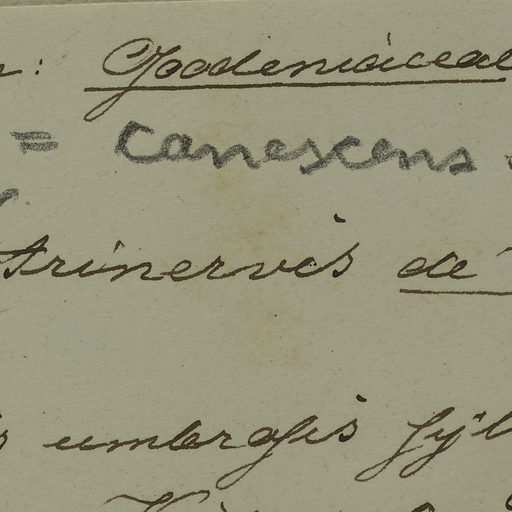 : Goodeniáceae
= canescens
trinervis de
umbrosis